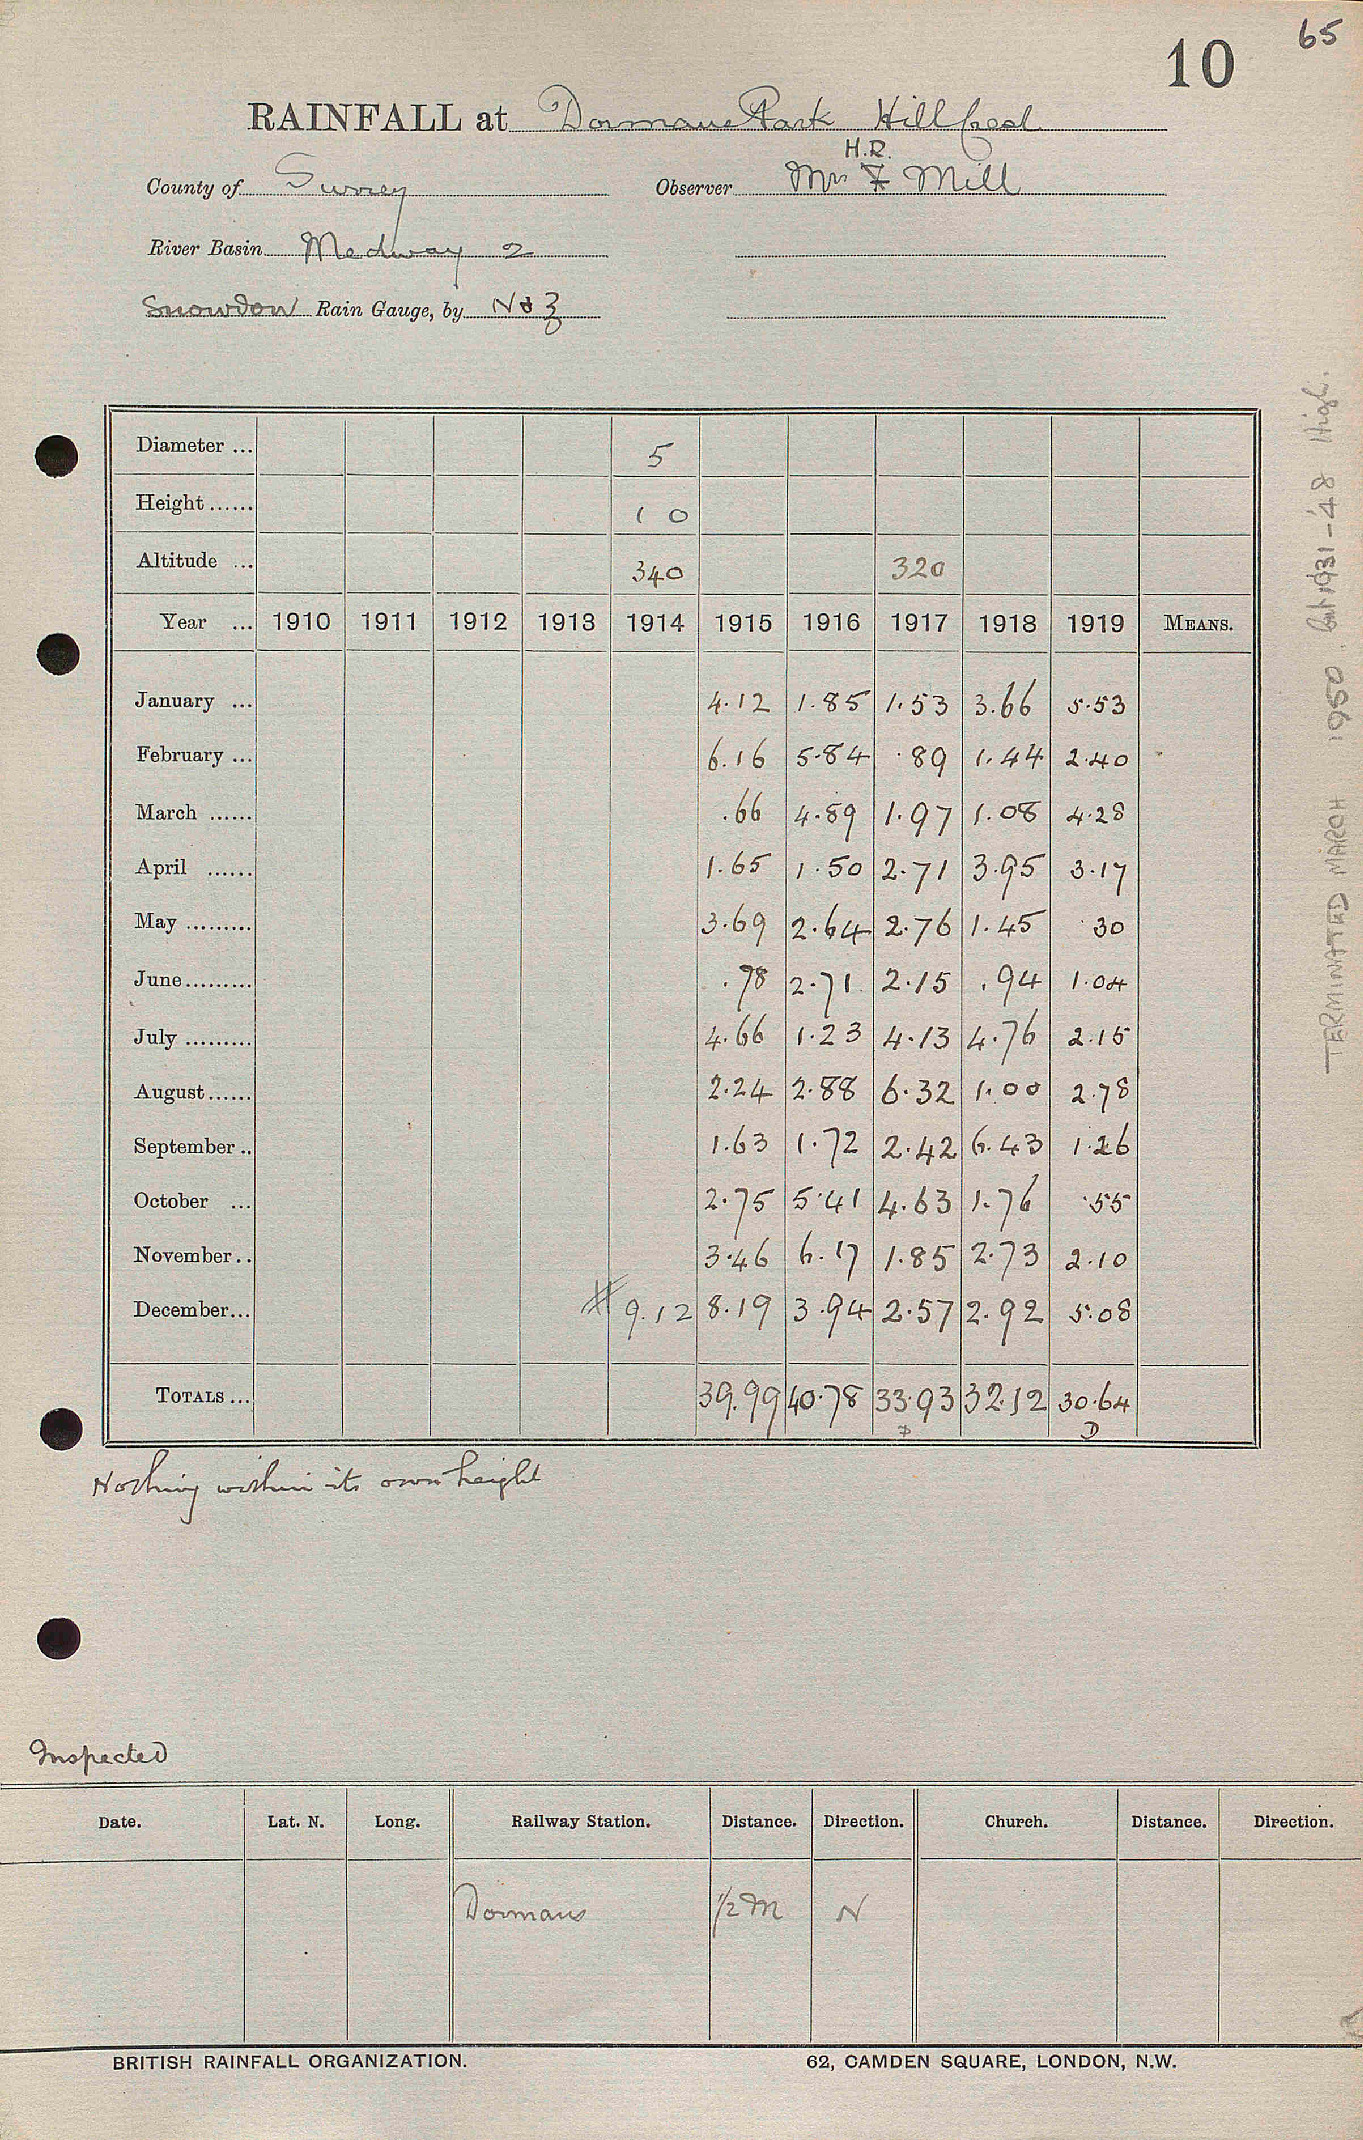 65
10
RAINFALL at Dormans Park Hill Crest
H.R.
County of Surrey Observer Mrs F Mill
River Basin Medway 2
Snowdon Rain Gauge, by No 3
Diameter ... 5
Height ...... 1 0
Altitude ... 340 320
Year ... 1910 1911 1912 1913 1914 1915 1916 1917 1918 1919 MEANS.
January ... 4.12 1.85 1.53 3.66 5.53
February ... 6.16 5.84 .89 1.44 2.40
March ...... .66 4.89 1.97 1.08 4.28
April ...... 1.65 1.50 2.71 3.95 3.17
May ......... 3.69 2.64 2.76 1.45 .30
June......... .78 2.71 2.15 .94 1.04
July ......... 4.66 1.23 4.13 4.76 2.15
August...... 2.24 2.88 6.32 1.00 2.78
September .. 1.63 1.72 2.42 6.43 1.26
October ... 2.75 5.41 4.63 1.76 .55
November.. 3.46 6.17 1.85 2.73 2.10
December... # 9.12 8.19 3.94 2.57 2.92 5.08
TOTALS ... 39.99 40.78 33.93 32.12 30.64
D D
Nothing within its own height
TERMINATED MARCH 1950. 1931-'48 High.
Inspected
Date. Lat. N. Long. Railway Station. Distance. Direction. Church. Distance. Direction.
Dormans 1/2 M N
BRITISH RAINFALL ORGANIZATION. 62, CAMDEN SQUARE, LONDON, N.W.